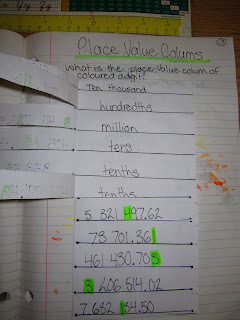 Place Value Colums
what is the place value colum of
coloured digit?
Ten thousand
hundredths
million
tens
tenths
tenths
5 321 497.62
73 701.361
461 430.703
3 206 514.02
7 632 134.50